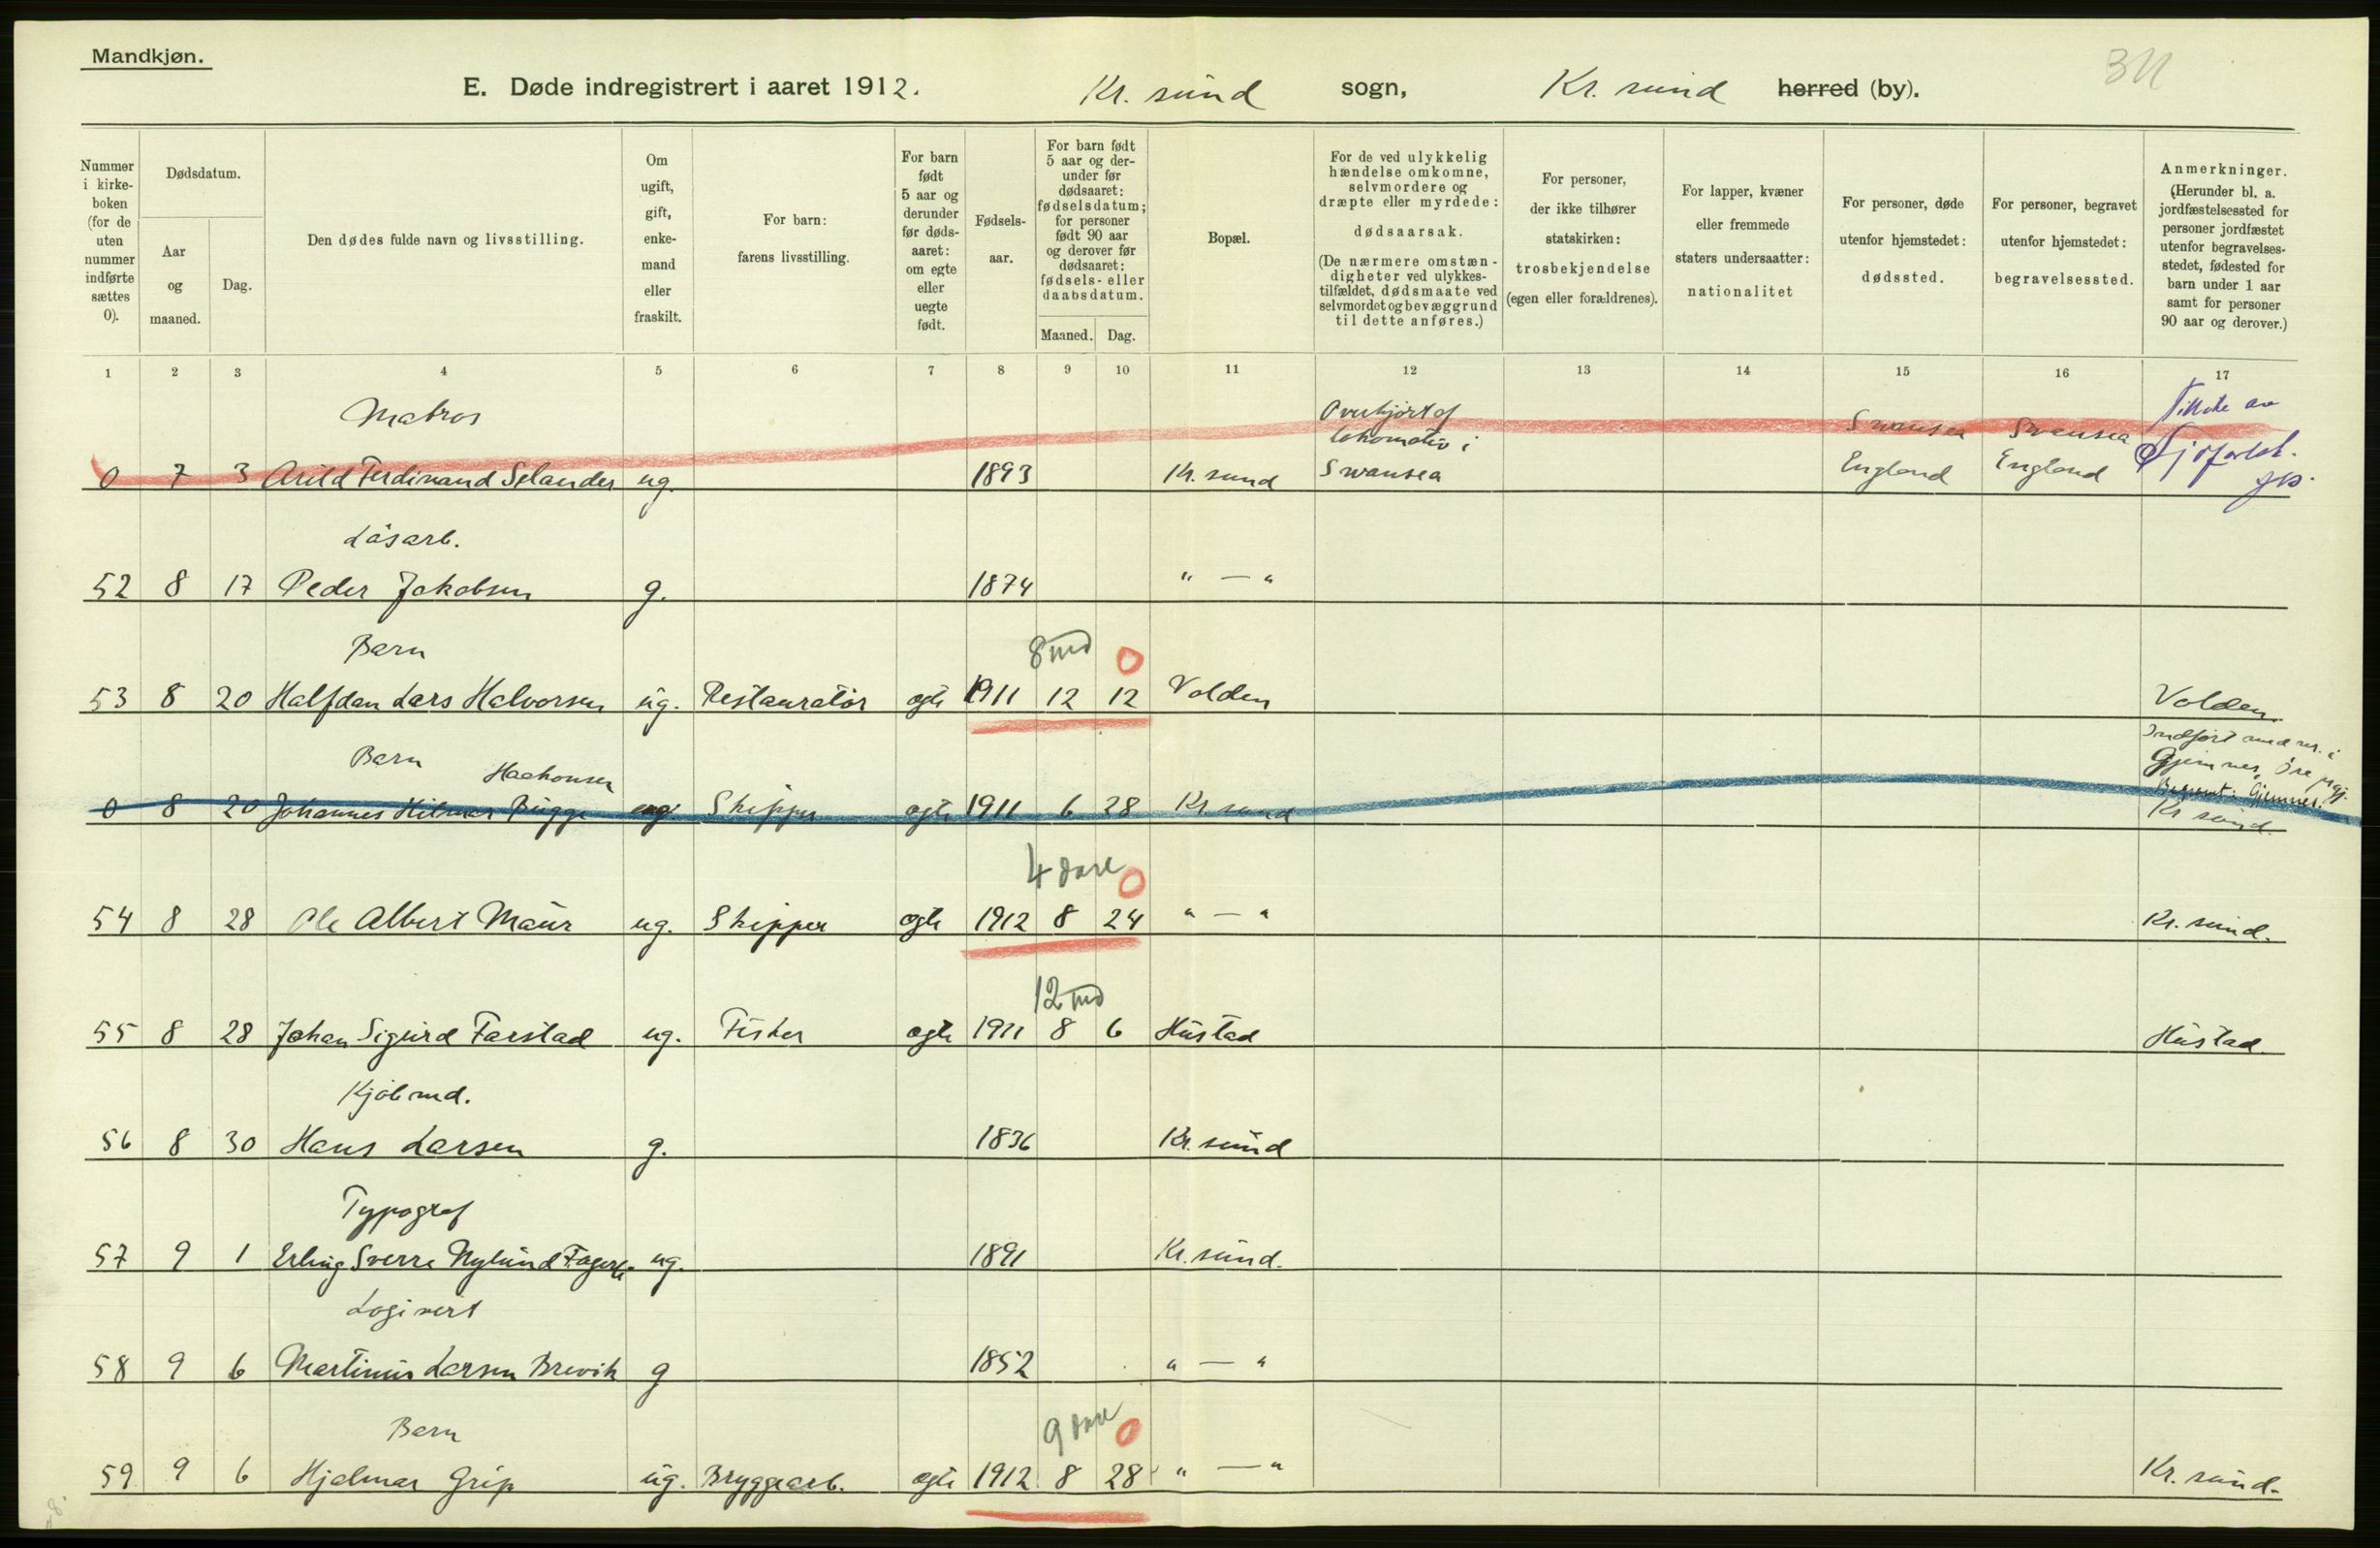 Mandkjøn.
E. Døde indregistrert i aaret 1912. Kr. sund sogn, Kr. sund herred (by).
Nummer i kirke-boken (for de uten nummer indførte sættes 0).
Dødsdatum.
Aar og maaned.
Dag.
Den dødes fulde navn og livsstilling.
Om ugift, gift, enke-mand eller fraskilt.
For barn: farens livsstilling.
For barn født 5 aar og derunder før døds-aaret: om egte eller uegte født.
Fødsels-aar.
For barn født 5 aar og der-under før dødsaaret: fødselsdatum; for personer født 90 aar og derover før dødsaaret: fødsels- eller daabsdatum.
Maaned. Dag.
Bopæl.
For de ved ulykkelig hændelse omkomne, selvmordere og dræpte eller myrdede: dødsaarsak.
(De nærmere omstæn-digheter ved ulykkes-tilfældet, dødsmaate ved selvmordet og bevæggrund til dette anføres.)
For personer, der ikke tilhører statskirken: trosbekjendelse (egen eller forældrenes).
For lapper, kvæner eller fremmede staters undersaatter: nationalitet
For personer, døde utenfor hjemstedet: dødssted.
For personer, begravet utenfor hjemstedet: begravelsessted.
Anmerkninger.
(Herunder bl. a. jordfæstelsessted for personer jordfæstet utenfor begravelses-stedet, fødested for barn under 1 aar samt for personer 90 aar og derover.)
1 2 3 4 5 6 7 8 9 10 11 12 13 14 15 16 17
Matros Overkjørt af
lokomotiv i Swansea Swansea
0 7 3 Arild Ferdinand Selander ug. 1893 Kr. sund Swansea England England
Løsarb.
52 8 17 Peder Jakobsen g. 1874 " — "
Barn 8 md 0
53 8 20 Halfdan Lars Halvorsen ug. Restauratør egte 1911 12 12 Volden Volden.
Barn Haakonsen Indført med nr. i
Gjemnes, Øre prgj.
0 8 20 Johannes Hilmar Bugge ug. Skipper egte 1911 6 28 Kr. sund Begravet: Gjemnes.
Kr sund.
4 dage 0
54 8 28 Ole Albert Maur ug. Skipper egte 1912 8 24 " — " Kr. sund.
12 md
55 8 28 Johan Sigurd Farstad ug. Fisker egte 1911 8 6 Hustad Hustad.
Kjøbmd.
56 8 30 Hans Larsen g. 1836 Kr. sund
Typograf
57 9 1 Erling Sverre Nylund ug. 1891 Kr. sund.
Logivert
58 9 6 Martinus Larsen Brevik g 1852 " — "
Barn 9 dage 0
59 9 6 Hjalmar Grip ug. Bryggearb. egte 1912 8 28 " — " Kr. sund.